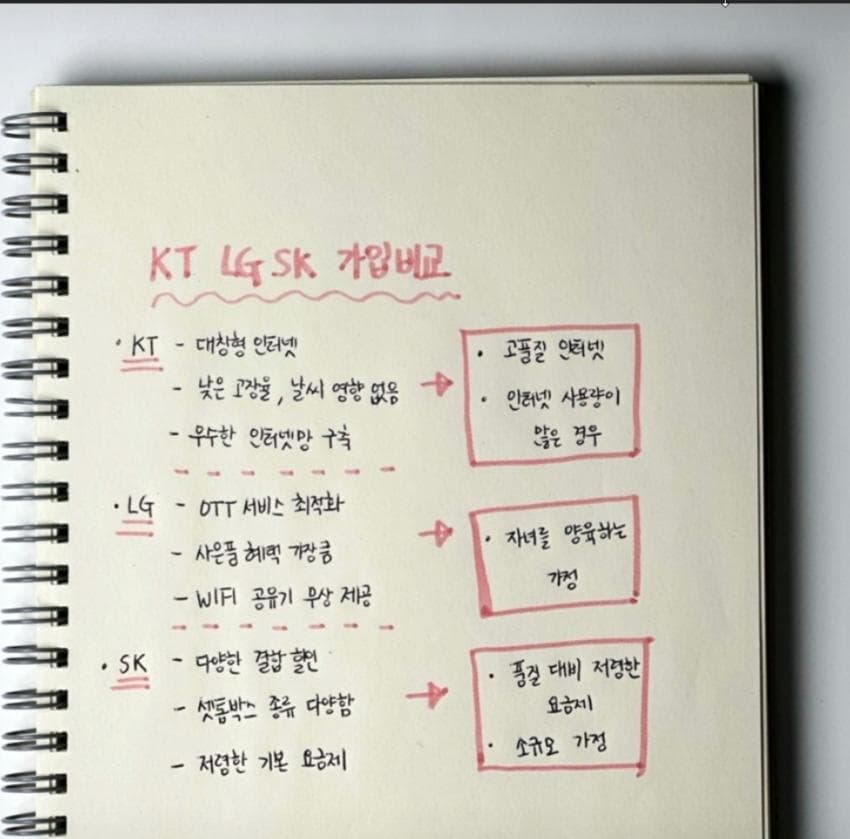 KT LG SK 가입비교
· KT - 대칭형 인터넷
- 낮은 고장율, 날씨 영향 없음
- 우수한 인터넷망 구축
· 고품질 인터넷
· 인터넷 사용량이
많은 경우
· LG - OTT 서비스 최적화
- 사은품 혜택 가장큼
- WIFI 공유기 무상 제공
· 자녀를 양육하는
가정
· SK - 다양한 결합 할인
- 셋톱박스 종류 다양함
- 저렴한 기본 요금제
· 품질 대비 저렴한
요금제
· 소규모 가정